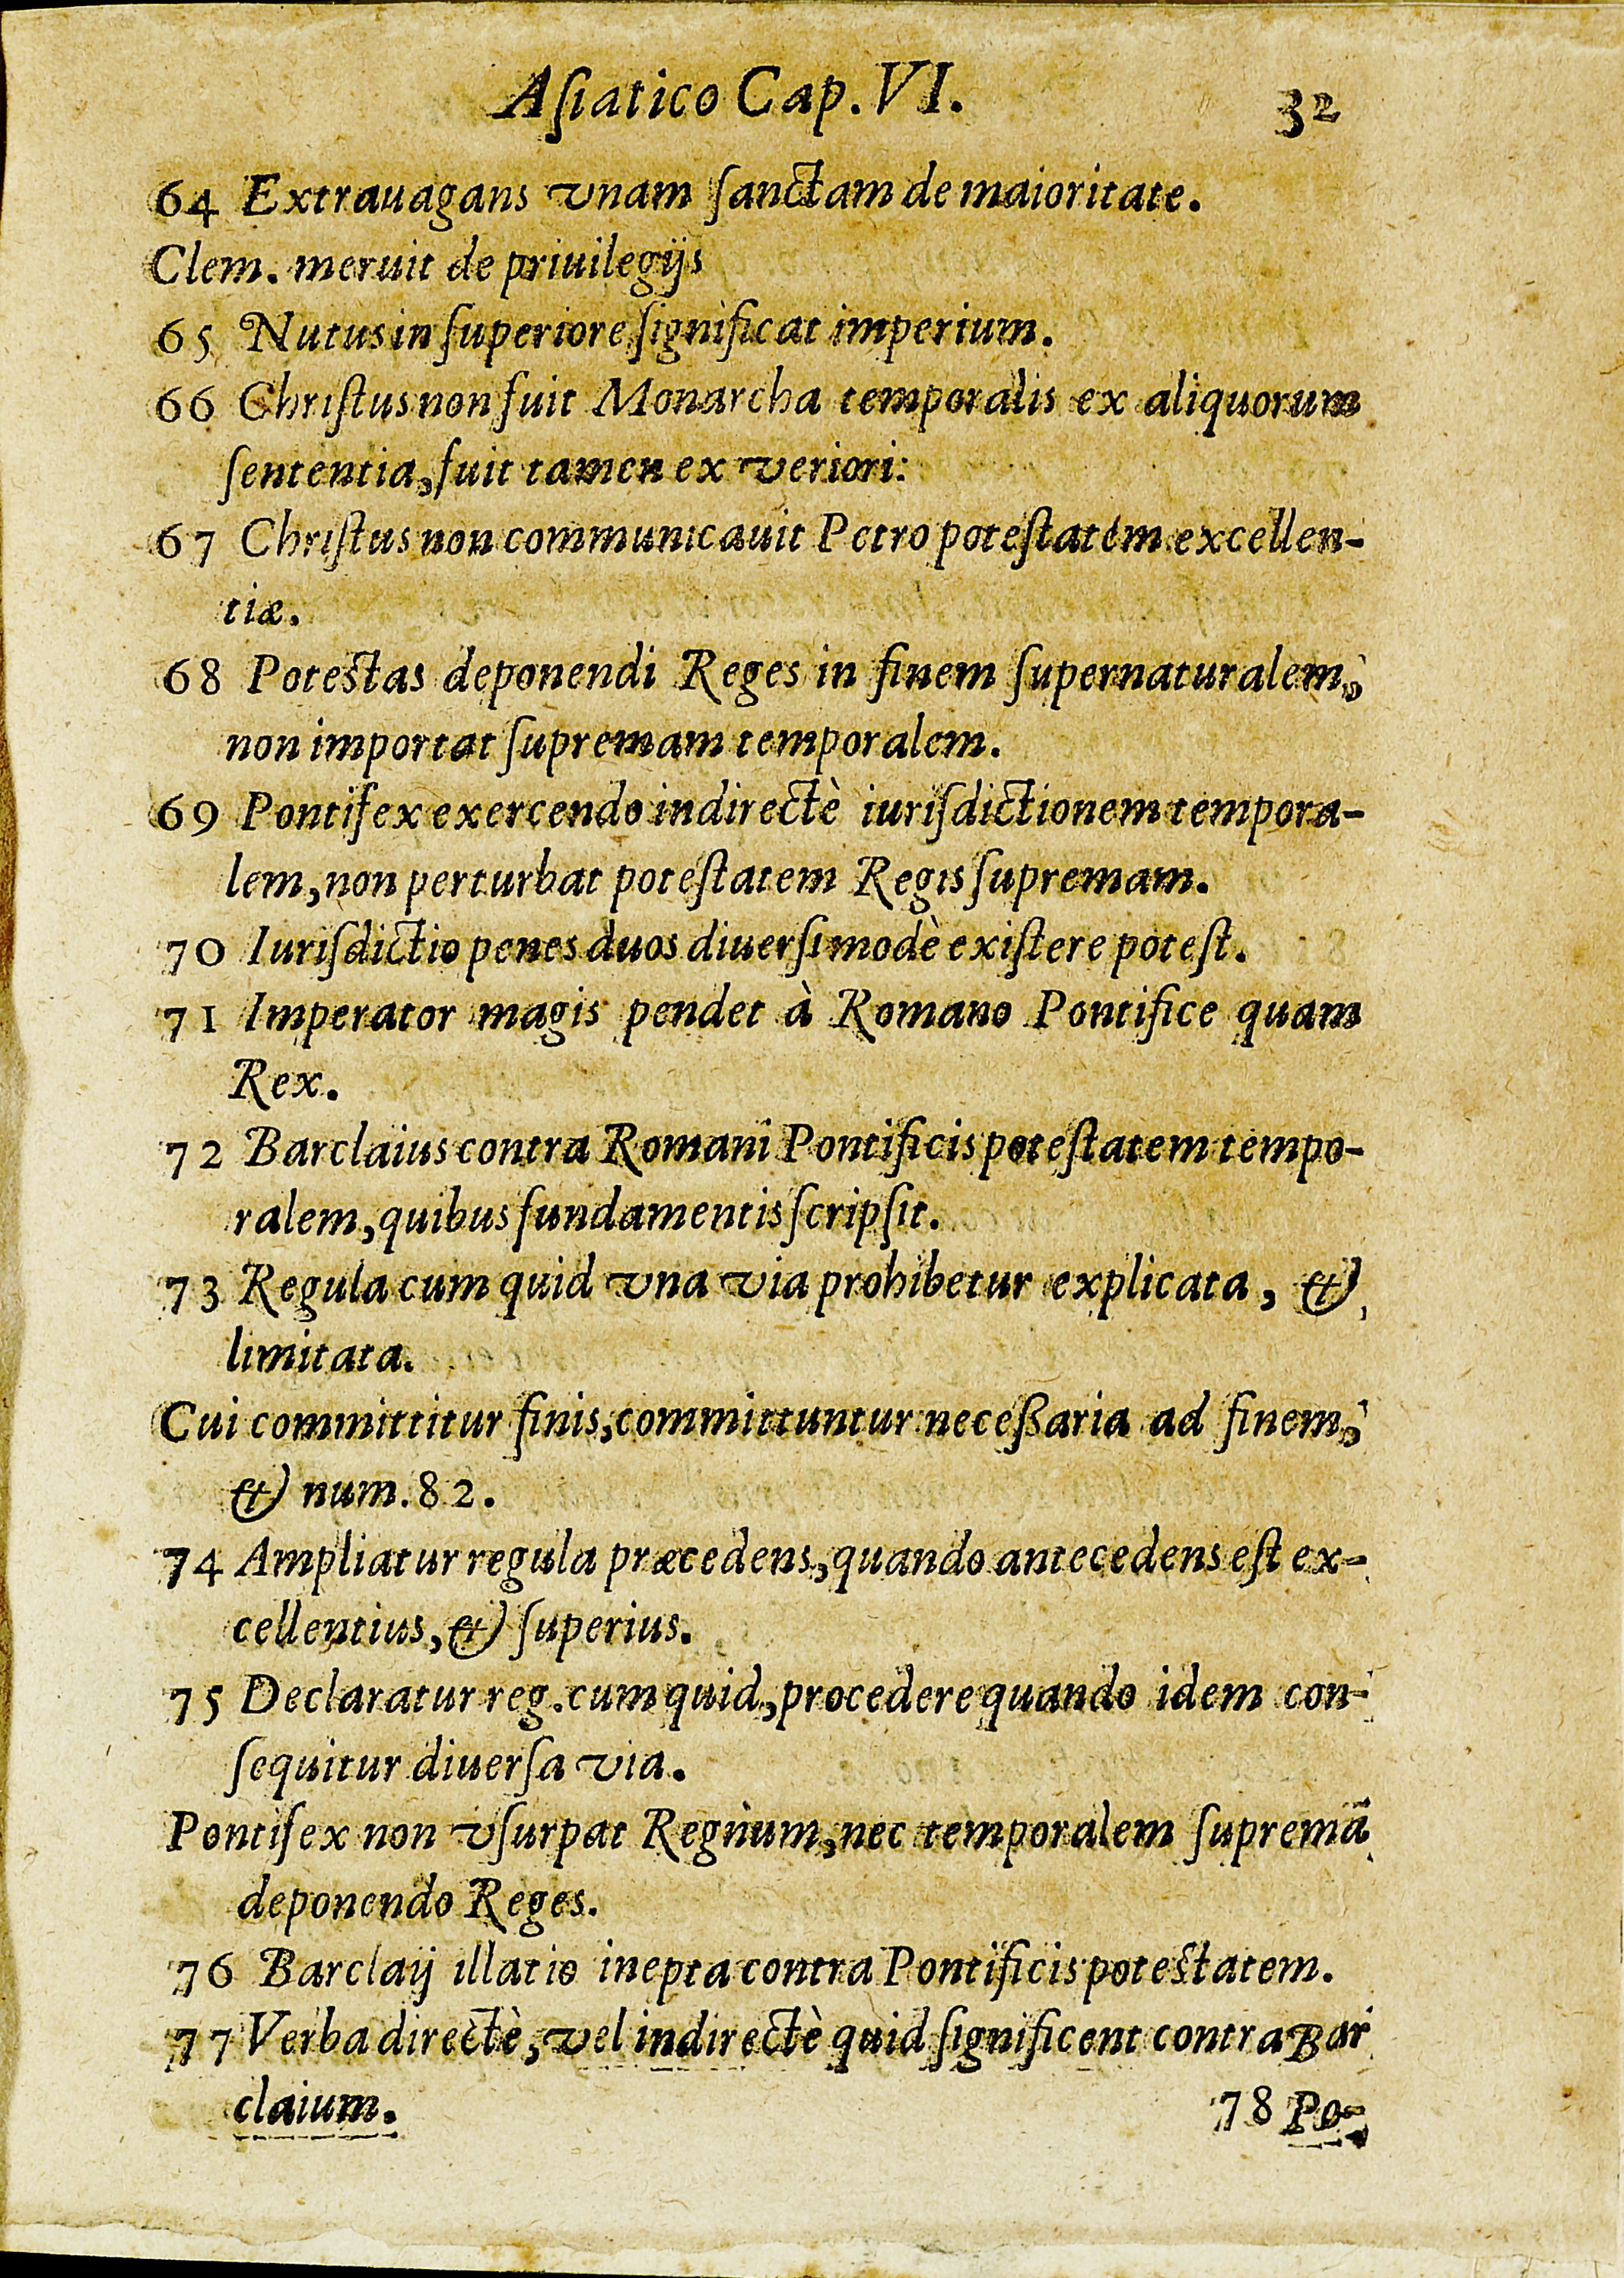 Aſiatico Cap. VI. 32
64 Extrauagans vnam ſanctam de maioritate.
Clem. meruit de priuilegijs
65 Nutus in ſuperiore ſignificat imperium.
66 Chriſtus non fuit Monarcha temporalis ex aliquorum
ſententia, fuit tamen ex veriori:
67 Chriſtus non communicauit Petro poteſtatem excellen-
tiæ.
68 Poteſtas deponendi Reges in finem ſupernaturalem,
non importat ſupremam temporalem.
69 Pontifex exercendo indirectè iuriſdictionem tempora-
lem, non perturbat poteſtatem Regis ſupremam.
70 Iuriſdictio penes duos diuerſimodè exiſtere poteſt.
71 Imperator magis pendet à Romano Pontifice quam
Rex.
72 Barclaius contra Romani Pontificis poteſtatem tempo-
ralem, quibus fundamentis ſcripſit.
73 Regula cum quid vna via prohibetur explicata, &
limitata.
Cui committitur finis, committuntur neceßaria ad finem,
& num. 82.
74 Ampliatur regula præcedens, quando antecedens eſt ex-
cellentius, & ſuperius.
75 Declaratur reg. cum quid, procedere quando idem con-
ſequitur diuerſa via.
Pontifex non vſurpat Regnum, nec temporalem ſupremã
deponendo Reges.
76 Barclaij illatio inepta contra Pontificis poteſtatem.
77 Verba directè, vel indirectè quid ſignificent contra Bar
claium.
78 Po-